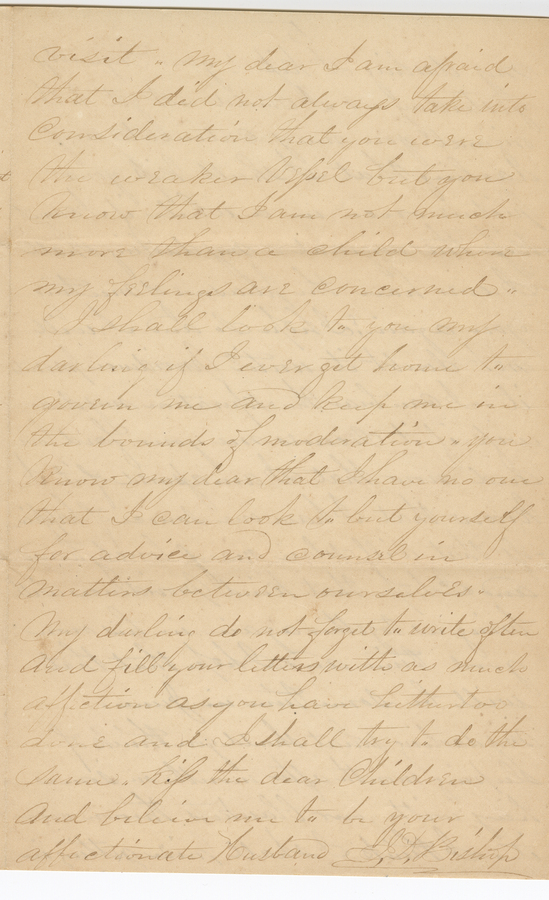 visit „ My dear I am afraid
that I did not always take into
Consideration that you were
the weaker Vessel but you
know that I am not much
more than a child where
my feelings are concerned „
I shall look to you my
darling if I ever get home to
govern me and keep me in
the bounds of moderation „ you
Know my dear that I have no one
that I can look to but yourself
for advice and counsel in
matters between ourselves.
My darling do not forget to write often
And fill your letters with as much
affection as you have hithertoo
done and I shall try to do the
same. kiss the dear Children
And believe me to be your
affectionate Husband Bishop